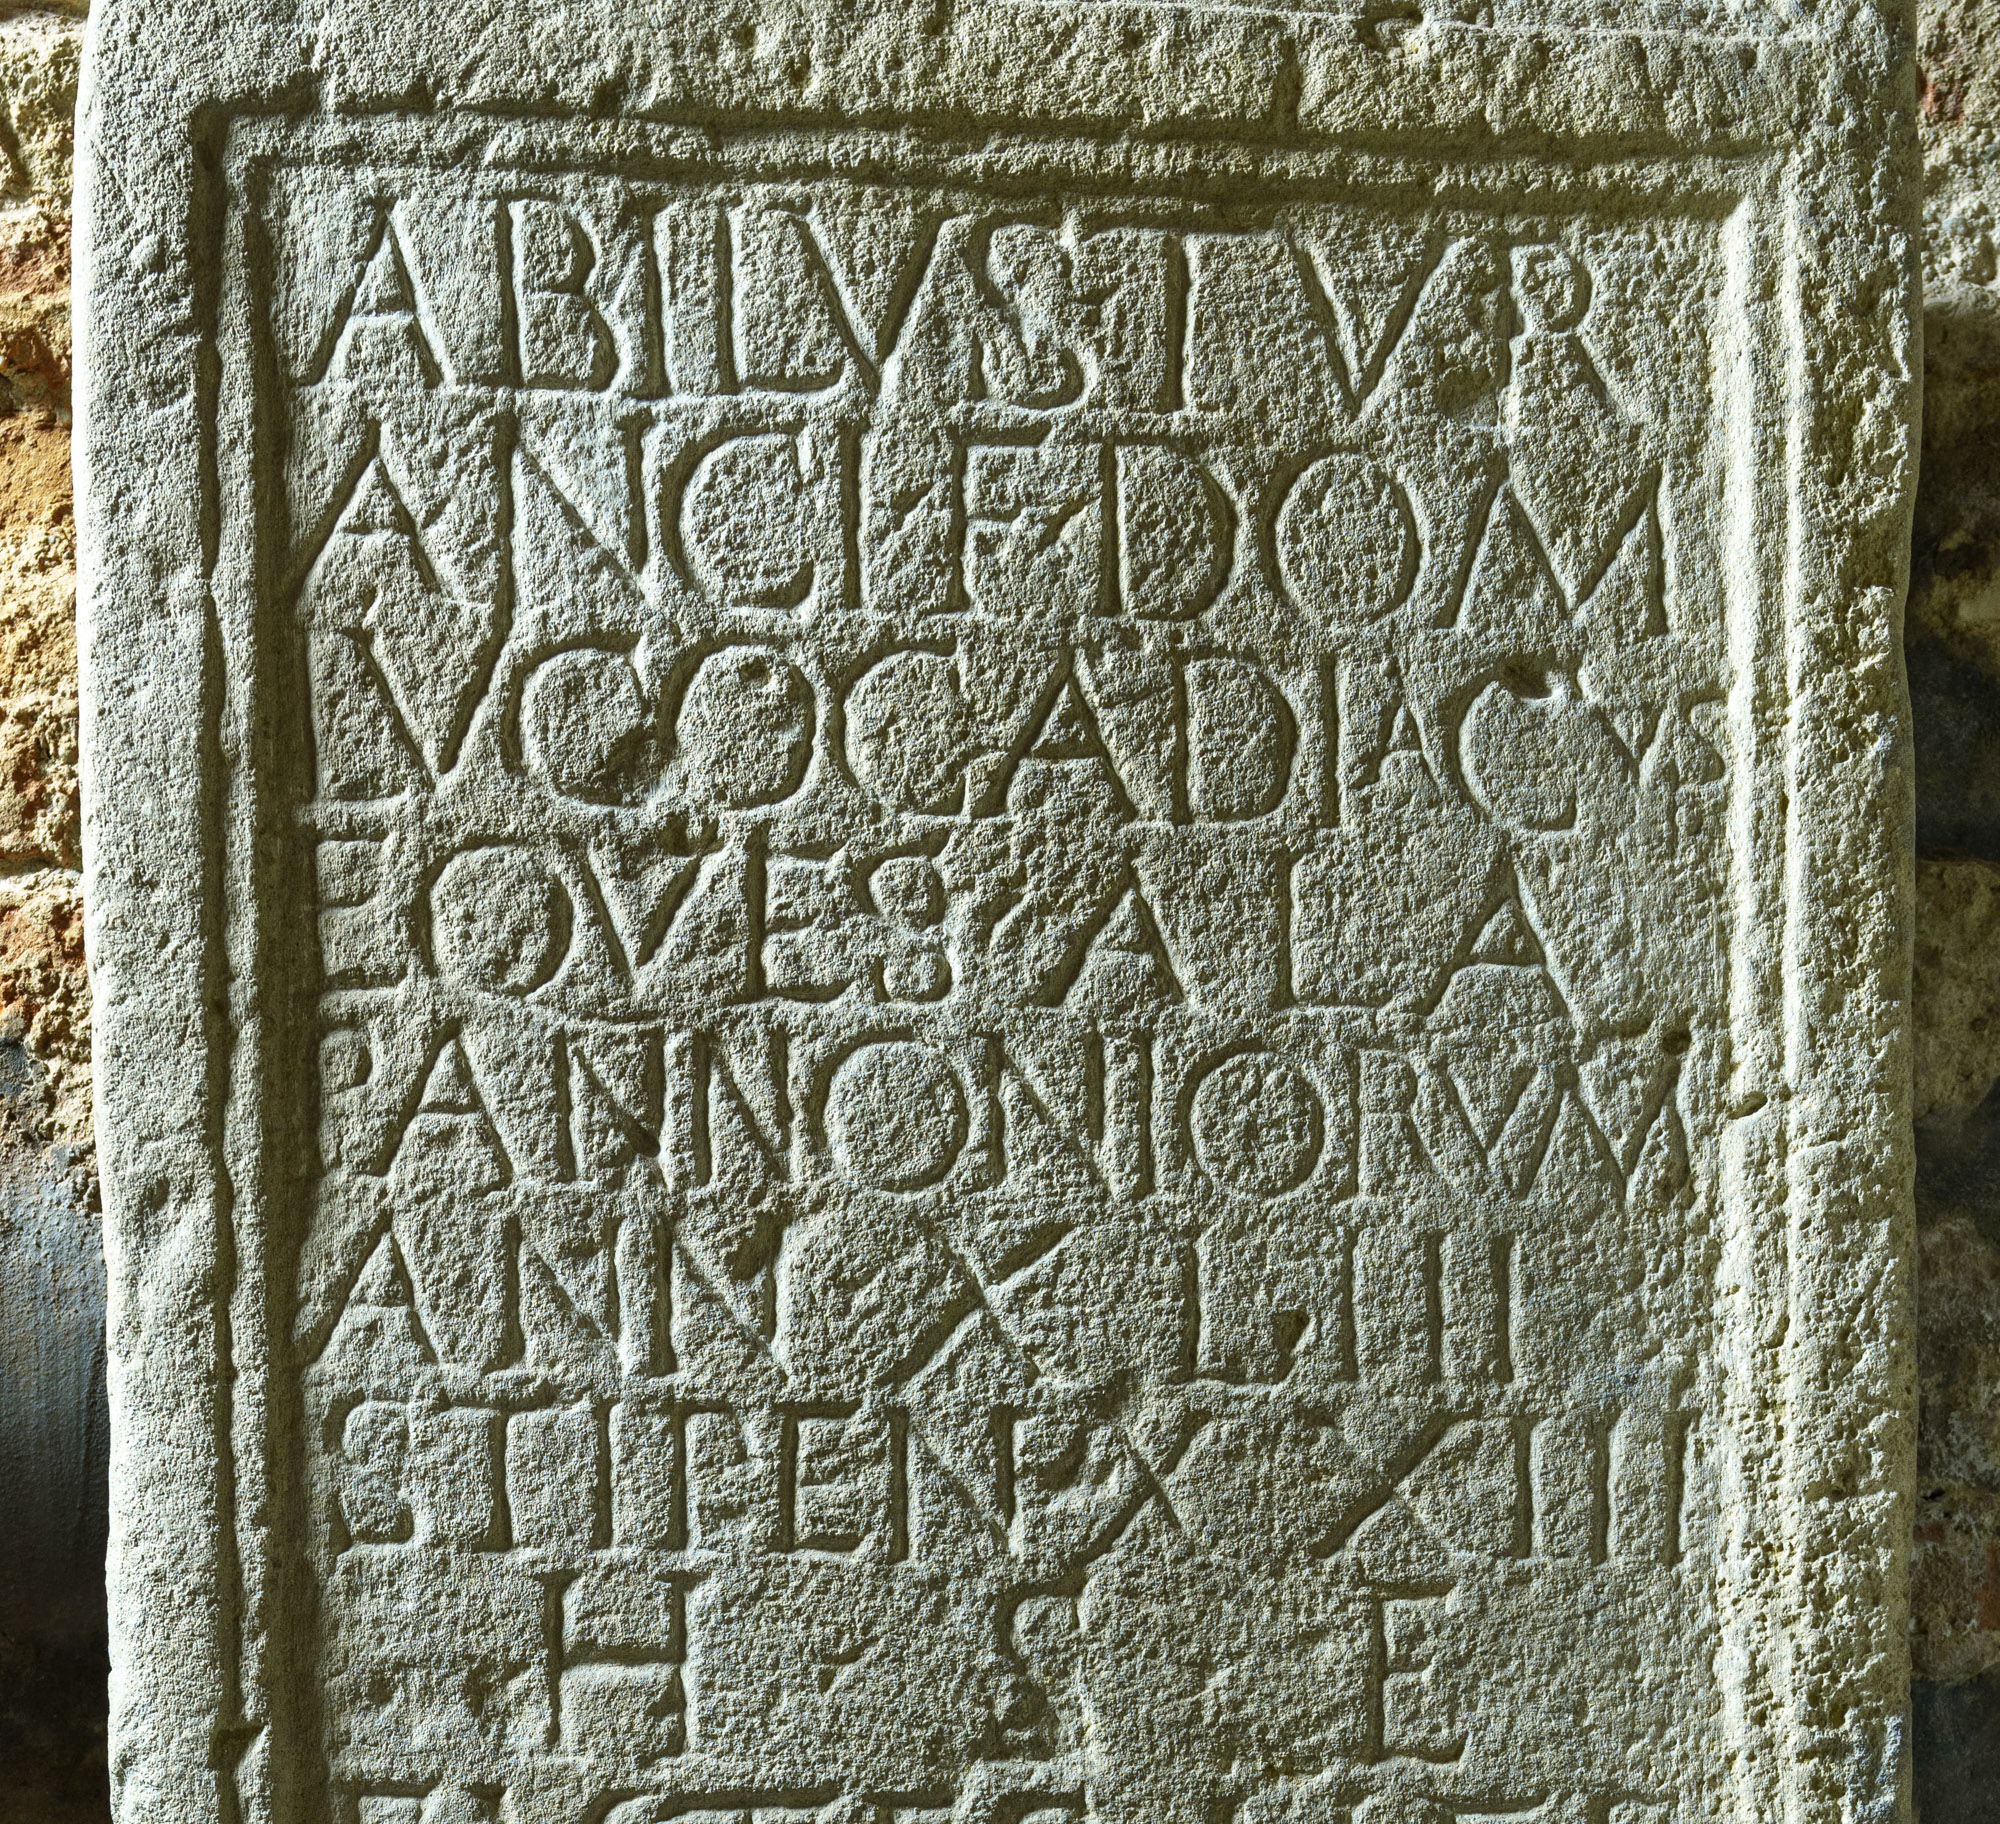 ABILVS TVR
ANCI F DOM
LVCOCADIACVS
EQVES ALA
PANNONIORVM
ANN XLIIII
STIPEN XXIII
H S E